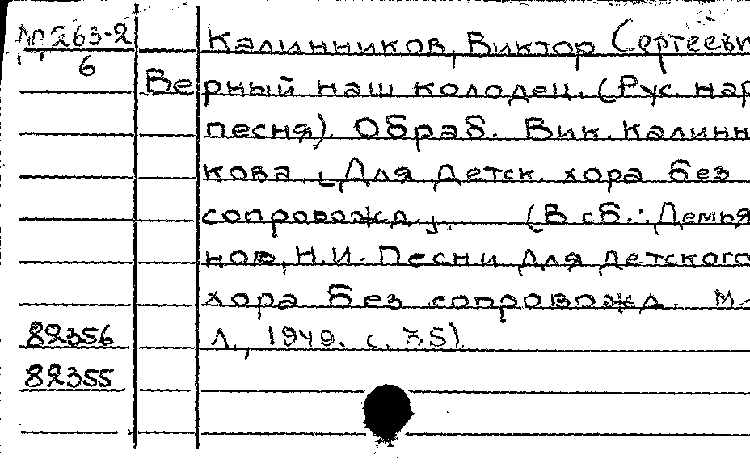 263-2 Калинников, Виктор Сергееви
6
Верный наш колодец. (Рус. нар
песня) Обраб. Вик. Калинн
кова. [Для детск. хора без
сопровожд.]. (В сб.: Демья
нов, Н.И. Песни для детского
хора без сопровожд. М.-
82356 Л., 1949. с. 75)
82355